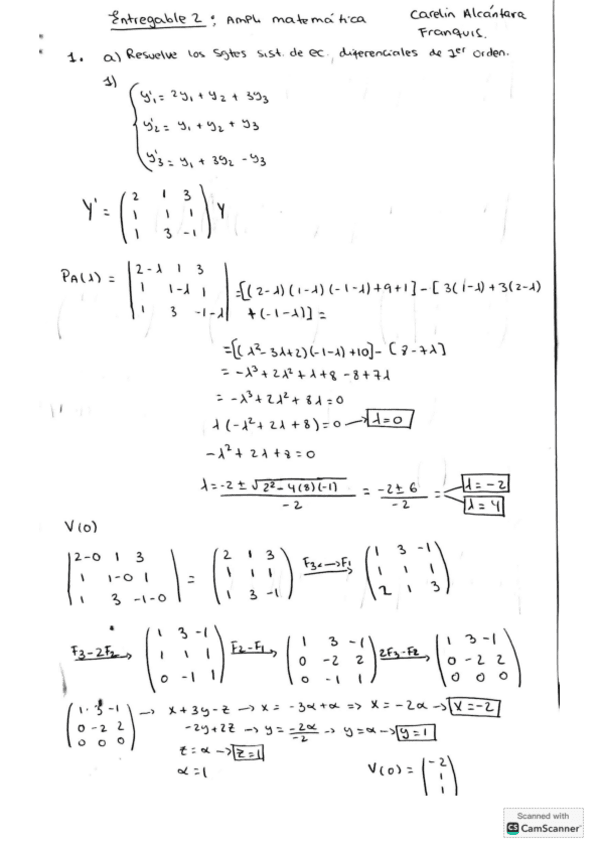 Entregable 2: Ampl matemática
Carelin Alcántara
Franquis.
1. a) Resuelve los sgtes sist. de ec. diferenciales de 1er orden.
1)
y'1 = 2y1 + y2 + 3y3
y'2 = y1 + y2 + y3
y'3 = y1 + 3y2 - y3
Y' = ( 2 1 3
1 1 1
1 3 -1 ) Y
PA(λ) = | 2-λ 1 3
1 1-λ 1
1 3 -1-λ | = [(2-λ)(1-λ)(-1-λ)+9+1] - [3(1-λ)+3(2-λ)
+(-1-λ)] =
= [(λ²-3λ+2)(-1-λ)+10] - [8-7λ]
= -λ³+2λ²+λ+8-8+7λ
= -λ³+2λ²+8λ=0
λ(-λ²+2λ+8)=0 → λ=0
-λ²+2λ+8=0
λ = -2 ± √2²-4(8)(-1) / -2 = -2±6 / -2 = λ=-2
λ=4
V(0)
| 2-0 1 3
1 1-0 1
1 3 -1-0 | = ( 2 1 3
1 1 1
1 3 -1 ) F3↔F1 ( 1 3 -1
1 1 1
2 1 3 )
F3-2F2 → ( 1 3 -1
1 1 1
0 -1 1 ) F2-F1 → ( 1 3 -1
0 -2 2
0 -1 1 ) 2F3-F2 → ( 1 3 -1
0 -2 2
0 0 0 )
( 1 3 -1
0 -2 2
0 0 0 ) → x+3y-z → x = -3α+α ⇒ x = -2α → x=-2
-2y+2z → y = -2α/-2 → y=α → y=1
z=α → z=1
α=1
V(0) = ( -2
1
1 )
Scanned with
CS CamScanner